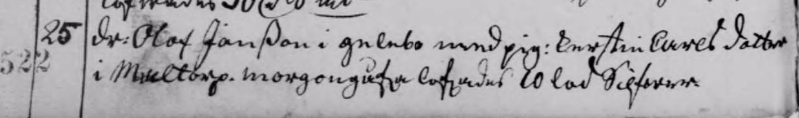 25 dr: Olof Janßon i gulebo med pig: Kerstin Carls dotter
522
i Maltorp. morgongufva lofvades 10 lod Silfwer.